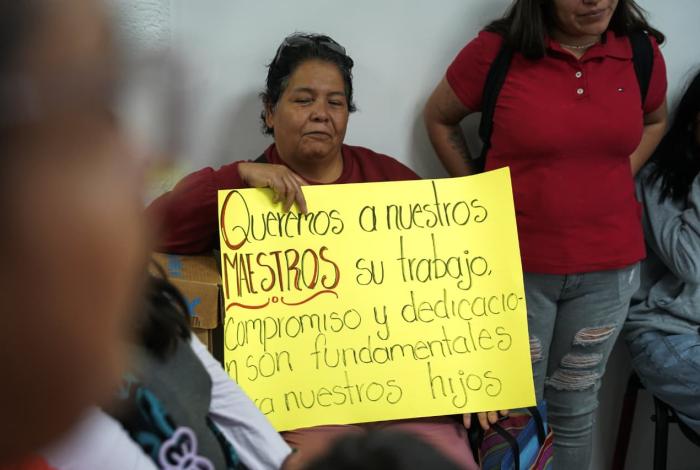 Queremos a nuestros
MAESTROS su trabajo,
compromiso y dedicacio-
n son fundamentales
ra nuestros hijos